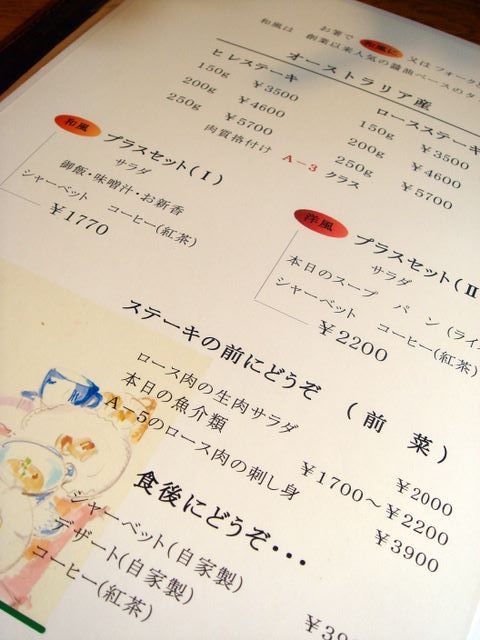 お箸で 和風に 又は フォークと
和風は 創業以来人気の醤油ベースのタ
オーストラリア産
ヒレステーキ
150g ¥3500
200g ¥4600
250g ¥5700
ロースステーキ
150g ¥3500
200g ¥4600
250g ¥5700
肉質格付け A-3 クラス
和風 プラスセット(Ⅰ)
サラダ
御飯・味噌汁・お新香
シャーベット コーヒー(紅茶)
¥1770
洋風 プラスセット(Ⅱ
サラダ
本日のスープ パン (ライ
シャーベット コーヒー(紅茶)
¥2200
ステーキの前にどうぞ (前 菜)
ロース肉の生肉サラダ ¥2000
本日の魚介類 ¥1700~¥2200
A-5のロース肉の刺し身 ¥3900
食後にどうぞ・・・
シャーベット(自家製)
デザート(自家製)
コーヒー(紅茶)